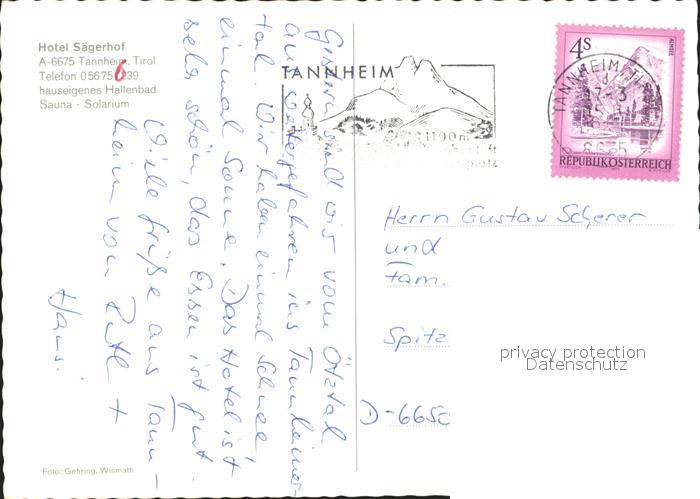 Hotel Sägerhof
A-6675 Tannheim, Tirol
Telefon 05675 6 239
hauseigenes Hallenbad
Sauna - Solarium
Gestern sind wir vom Ötztal
aus weitergefahren ins Tannheimer-
tal. Wir haben einmal Schnee,
einmal Sonne. Das Hotel ist
sehr schön, das Essen ist gut.
Viele Grüße aus Tann-
heim von Ruth +
Hans.
Foto: Gehring, Wismath
TANNHEIM
1100m
4s
ALMSEE
REPUBLIK ÖSTERREICH
TANNHEIM
6675
Herrn Gustav Scherer
und
Fam.
Spitz
D-6650
privacy protection
Datenschutz